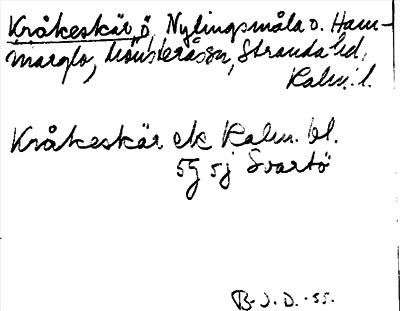 Kråkeskär, ö, Nylingsmåla o. Ham-
marglo, Mönsterås sn, Stranda hd,
Kalm. l.
Kråkeskär ek Kalm. bl.
5g sj Svartö
B.J.D. -55.